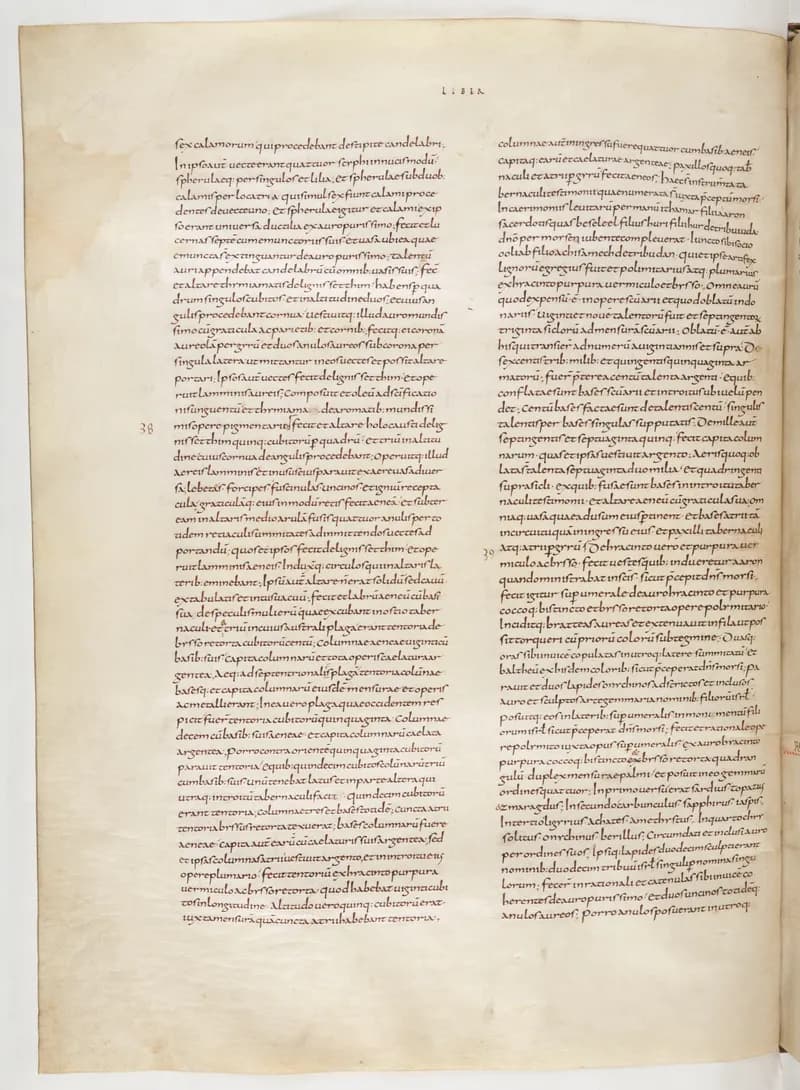 LIBER
sex calamorum qui procedebant de stipite candelabri;
In ipso aut̄ uecte erant quattuor scyphi in nucis modū;
spherulaeq: per singulos et lilia; et spherulae sub duob:
calamis per loca tria qui simul sex fiunt calami proce
dentes de uecte uno; et spherulae igitur et calami ex ip
so erant uniuersa ductilia ex auro purissimo; fecit et lu
cernas septē cum emunctoriis suis et uasa ubi ea quae
emuncta sŧ extinguantur de auro purissimo; talentū
auri appendebat candelabrū cū omnib: uasis suis; fec̄
et altare thymiamatis de lignis setthim habens p̄ qua
drum singulos cubitos et in altitudine duos; e cuius an
gulis procedebant cornua; uestiuitq: illud auro mundis
simo cū graticula ac parietib: et cornib; fecitq: ei coronā
aureolā per gyrū et duos anulos aureos sub corona per
singula latera ut mittantur in eos uectes et possit altare
portari; Ipsos aut̄ uectes fecit de lignis setthim et ope
ruit lamminis aureis; Composuit et oleū ad scificatio
nis unguentū et thymiama de aromatib: mundissi
mis opere pigmentarii; fecit et altare holocausti de lig
nis setthim quinq: cubitorū p quadrū et triū in altitu
dine cuius cornua de angulis procedebant; Operuitq: illud
aereis lamminis et in usus eius parauit ex aere uasa diuer
sa; lebetas forcipes fuscinulas uncinos et igniū recepta
cula; graticulāq: eius in modū retis fecit aeneā; et subter
eam in altaris medio arulā; fusis quattuor anulis per to
tidem retiaculi summitates ad inmittendos uectes ad
portandū; quos et ipsos fecit de lignis setthim et ope
ruit lamminis aeneis; Induxitq: circulos qui in altaris la
terib: eminebant; Ipsū aut̄ altare n̄ erat solidū sed cauū
ex tabulatis et intus uacuū; fecit et labrū aeneū cū basi
sua de speculis mulierū quae excubant in ostio taber
naculi; et atriū in cuius australi plaga erant tentoria de
bysso retorta cubitorū centū; Columnae aeneae uiginti cū
basib: suis; capita columnarū et tota operis caelatura ar
gentea; Aeq: ad septentrionalis plaga tentoria colūnae
basesq: et capita columnarū eiusdē mensurae et operis
ac metalli erant; In ea uero plaga quae occidentem res
picit fuer̄ tentoria cubitorū quinquaginta; Columnae
decem cū basib: suis aeneae; et capita columnarū caelata
argentea; porro contra orientē quinquaginta cubitorū
parauit tentoria; e quib: quindecim cubitos colūnarū triū
cum basib: suis unū tenebat latus et in parte altera qui
utraq: introitū tabernaculi facit; quindecim cubitorū
erant tentoria; columnae tres et bases totidē; cuncta atrii
tentoria byssus retorta texuerat; bases columnarū fuere
aeneae; capita aut̄ earū cū caelaturis suis argentea; sed
et ipsas columnas atrii uestiuit argento; et in introitu eius
opere plumario fecit tentoriū ex hiacincto purpura
uermiculo ac bysso retorta; quod habebat uiginti cubi
tos in longitudine; Altitudo uero quinq: cubitorū erat
iuxta mensurā quā cuncta atrii habebant tentoria;
38
columnae aut̄ in ingressu fuere quattuor cum basib: aeneis
capitaq: earū et caelaturae argenteae; paxillos quoq: tab
naculi et atrii p gyrū fecit aeneos; haec s̄ instrumta ta
bernaculi testamonii quae enumerata s̄ iuxta pceptū mosi
In caerimoniis leuitarū per manū ithamar filii aaron
sacerdotis quas beseleel filius huri filii hur de tribu iuda
dn̄o per mosen iubente compleuerat; Iuncto sibi socio
ooliab filio achisamech de tribu dan; qui et ipse artifex
lignorū egregius fuit et polimitarius atq: plumarius
ex hyacinto purpura uermiculo et bysso; Omne aurū
quod expensū ē in opere sc̄uarii et quod oblatū in do
nariis uiginti et nouē talentorū fuit et septingentorū
triginta siclorū ad mensurā sc̄uarii; Oblatū ē aut̄ ab
his qui transier̄ ad numerū a uiginti annis et supra; De
sexcentis trib: milib: et quingentis quinquaginta ar
matorū; fuer̄ p̄terea centū talenta argenti e quib:
conflatae sunt bases sc̄uarii et introitus ubi uelū pen
det; Centū bases factae sunt de talentis centū singulis
talentis per bases singulas supputatis; De mille aut̄
septingentis et septuaginta quinq: fecit capita colum
narum quas et ipsas uestiuit argento; Aeris quoq: ob
lata s̄ talenta septuaginta duo milia et quadringenti
supra sicli ex quib: fusae sunt bases in introitu taber
naculi testimonii et altare aeneū cū graticula sua; om
niaq: uasa quae ad usum eius pinent et bases atrii tā
in circuitu quā in ingressu eius et paxilli tabernaculi
atq: atrii p gyrū; De hiacincto uero et purpura uer
miculo ac bysso fecit uestes quib: indueretur aaron
quando ministrabat in scīs sicut p̄cepit dn̄s mosi;
fecit igitur supumerale de auro hiacincto et purpura
coccoq: bis tincto et bysso retorta opere polymitario
Inciditq: bratteas aureas et extenuauit in fila ut pos
sit torqueri cū priorū colorū subtegmine; Duasq:
oras sibi inuicē copulatas in utroq: latere summitatū et
baltheū ex hisdem colorib: sicut p̄ceperat dn̄s mosi; pa
rauit et duos lapides onychinos adstrictos et inclusos
auro et sculptos arte gemmaria nominib: filiorū isrl
posuitq: eos in laterib: supumeralis in monumentū fili
orum isrl sicut p̄ceperat dn̄s mosi; fecit et rationale ope
re polymito iuxta opus supumeralis ex auro hiacincto
purpura coccoq: bis tincto et bysso retorta quadran
gulū duplex mensurae palmi; et posuit in eo gemmarū
ordines quattuor; In primo uersu erat sardius topazius
zmaragdus; In secundo carbunculus sapphirus iaspis;
In tertio ligyrius achates amethystus; In quarto chry
solitus onychinus berillus; Circumdati et inclusi auro
per ordines suos; Ipsiq: lapides duodecim sculpti erant
nominib: duodecim tribuū isrl singuli p nomina singu
lorum; fecer̄ in rationali et catenulas sibi inuicē co
herentes de auro purissimo; et duos uncinos totidēq:
anulos aureos; porro anulos posuerant in utroq:
39